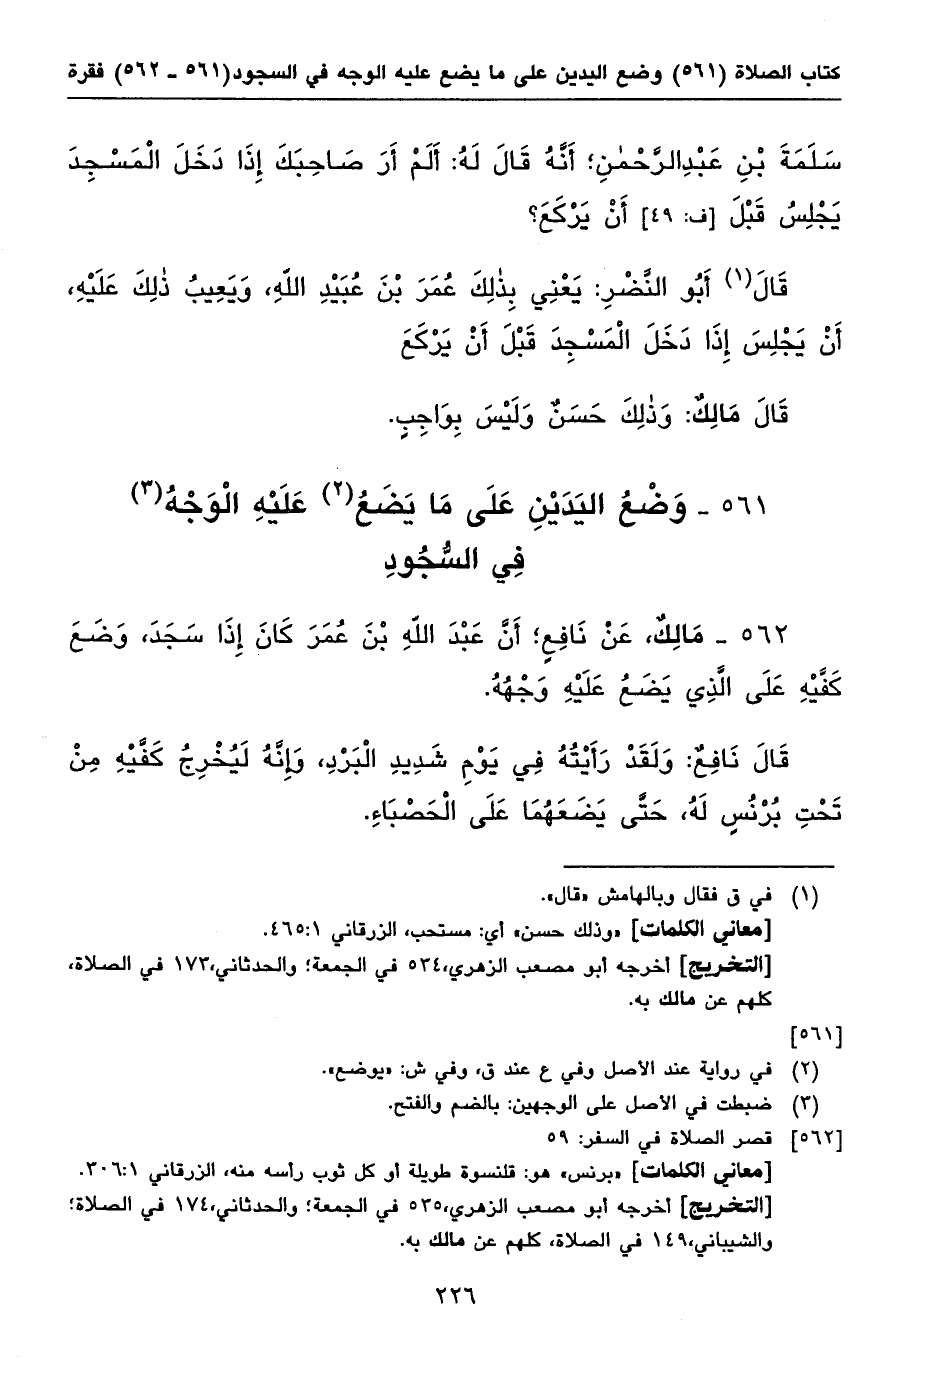 كتاب الصلاة (٥٦١) وضع اليدين على ما يضع عليه الوجه في السجود(٥٦١ - ٥٦٢) فقرة
سَلَمَةَ بْنِ عَبْدِالرَّحْمٰنِ؛ أَنَّهُ قَالَ لَهُ: أَلَمْ أَرَ صَاحِبَكَ إِذَا دَخَلَ الْمَسْجِدَ
يَجْلِسُ قَبْلَ [ف: ٤٩] أَنْ يَرْكَعَ؟
قَالَ(١) أَبُو النَّضْرِ: يَعْنِي بِذٰلِكَ عُمَرَ بْنَ عُبَيْدِ اللّٰهِ، وَيَعِيبُ ذٰلِكَ عَلَيْهِ،
أَنْ يَجْلِسَ إِذَا دَخَلَ الْمَسْجِدَ قَبْلَ أَنْ يَرْكَعَ
قَالَ مَالِكٌ: وَذٰلِكَ حَسَنٌ وَلَيْسَ بِوَاجِبٍ.
٥٦١ - وَضْعُ اليَدَيْنِ عَلَى مَا يَضَعُ(٢) عَلَيْهِ الْوَجْهُ(٣)
فِي السُّجُودِ
٥٦٢ - مَالِكٌ، عَنْ نَافِعٍ؛ أَنَّ عَبْدَ اللّٰهِ بْنَ عُمَرَ كَانَ إِذَا سَجَدَ، وَضَعَ
كَفَّيْهِ عَلَى الَّذِي يَضَعُ عَلَيْهِ وَجْهُهُ.
قَالَ نَافِعٌ: وَلَقَدْ رَأَيْتُهُ فِي يَوْمٍ شَدِيدِ الْبَرْدِ، وَإِنَّهُ لَيُخْرِجُ كَفَّيْهِ مِنْ
تَحْتِ بُرْنُسٍ لَهُ، حَتَّى يَضَعَهُمَا عَلَى الْحَصْبَاءِ.
(١) في ق فقال وبالهامش «قال».
[معاني الكلمات] «وذلك حسن» أي: مستحب، الزرقاني ٤٦٥:١.
[التخريج] أخرجه أبو مصعب الزهري،٥٣٤ في الجمعة؛ والحدثاني،١٧٣ في الصلاة،
كلهم عن مالك به.
[٥٦١]
(٢) في رواية عند الأصل وفي ع عند ق، وفي ش: «يوضع».
(٣) ضبطت في الأصل على الوجهين: بالضم والفتح.
[٥٦٢] قصر الصلاة في السفر: ٥٩
[معاني الكلمات] «برنس» هو: قلنسوة طويلة أو كل ثوب رأسه منه، الزرقاني ٣٠٦:١.
[التخريج] أخرجه أبو مصعب الزهري،٥٣٥ في الجمعة؛ والحدثاني،١٧٤ في الصلاة؛
والشيباني،١٤٩ في الصلاة، كلهم عن مالك به.
٢٢٦